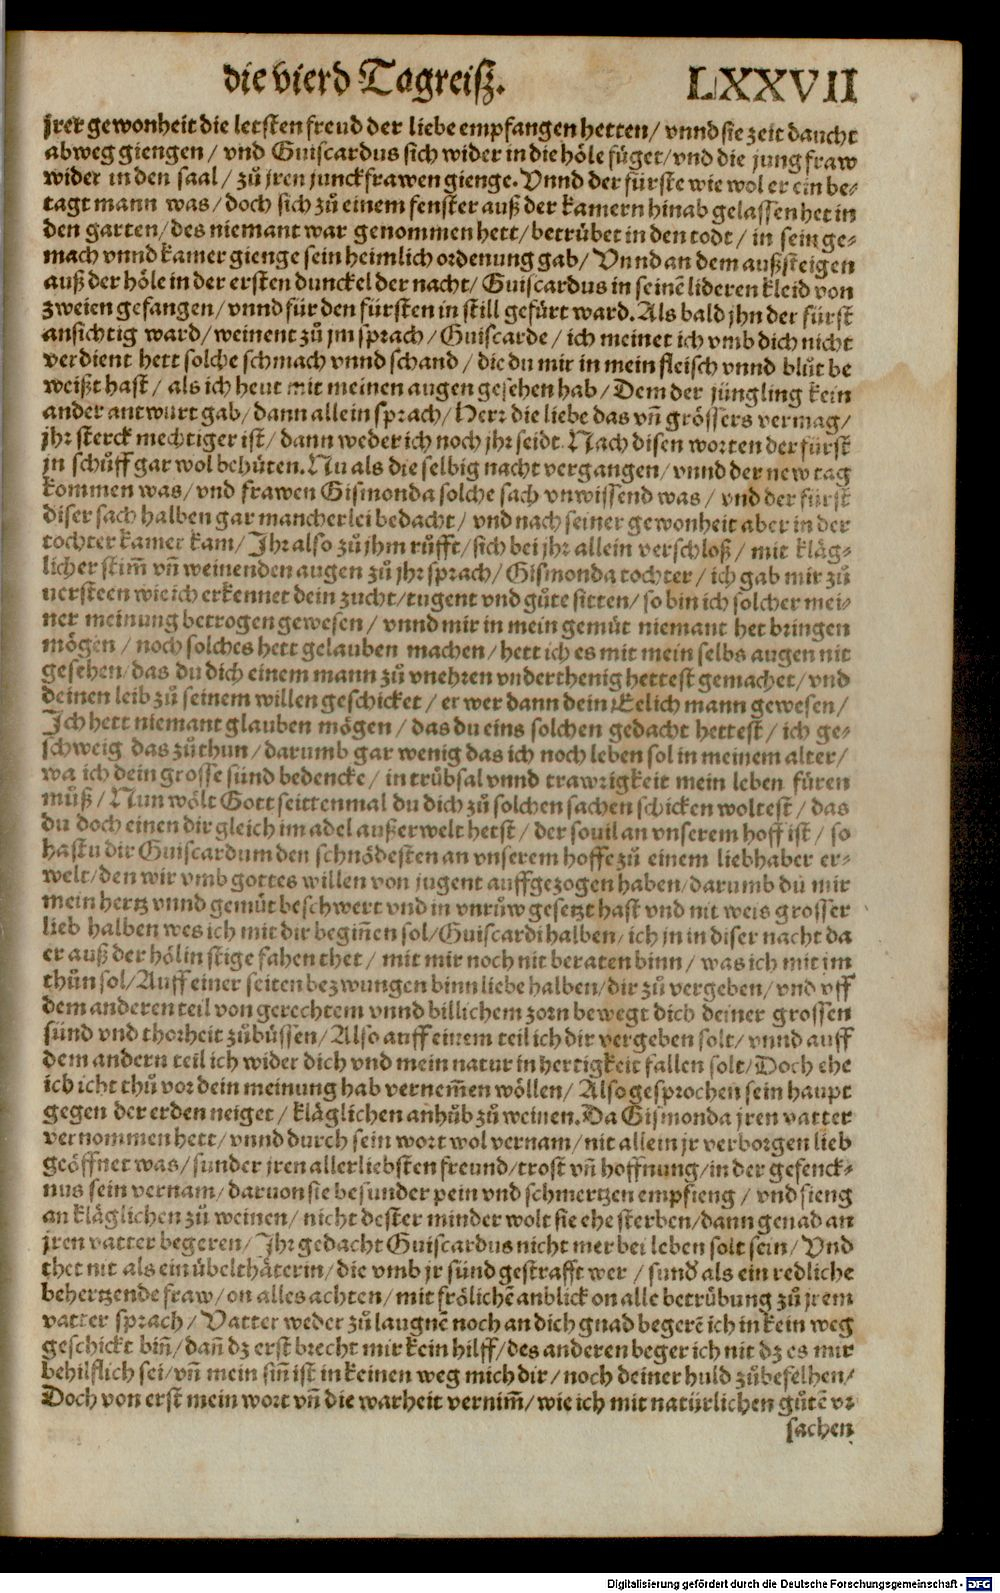 die vierd Tagreisz. LXXVII
jrer gewonheit die letsten freud der liebe empfangen hetten / vnnd sie zeit daucht
abweg giengen / vnd Guiscardus sich wider in die höle füget / vnd die jungfraw
wider in den saal / zů jren junckfrawen gienge. Vnnd der fürste wie wol er ein be⸗
tagt mann was / doch sich zů einem fenster auß der kamern hinab gelassen het in
den garten / des niemant war genommen hett / betrübet in den todt / in sein ge⸗
mach vnnd kamer gienge sein heimlich ordenung gab / Vnnd an dem außsteigen
auß der höle in der ersten dunckel der nacht / Guiscardus in seinē lideren kleid von
zweien gefangen / vnnd für den fürsten in still gefürt ward. Als bald jhn der fürst
ansichtig ward / weinent zů jm sprach / Guiscarde / ich meinet ich vmb dich nicht
verdient hett solche schmach vnnd schand / die du mir in mein fleisch vnnd blůt be
weißt hast / als ich heut mit meinen augen gesehen hab / Dem der jüngling kein
ander antwurt gab / dann allein sprach / Herr die liebe das vñ grössers vermag /
jhr sterck mechtiger ist / dann weder ich noch jhr seidt. Nach disen worten der fürst
jn schůff gar wol behüten. Nu als die selbig nacht vergangen / vnnd der new tag
kommen was / vnd frawen Gismonda solche sach vnwissend was / vnd der fürst
diser sach halben gar mancherlei bedacht / vnd nach seiner gewonheit aber in der
tochter kamer kam / Jhr also zů jhm růfft / sich bei jhr allein verschloß / mit kläg⸗
licher stim̃ vñ weinenden augen zů jhr sprach / Gismonda tochter / ich gab mir zů
uersteen wie ich erkennet dein zucht / tugent vnd gůte sitten / so bin ich solcher mei⸗
ner meinung betrogen gewesen / vnnd mir in mein gemüt niemant het bringen
mögen / noch solches hett gelauben machen / hett ich es mit mein selbs augen nit
gesehen / das du dich einem mann zů vnehren vnderthenig hettest gemachet / vnd
deinen leib zů seinem willen geschicket / er wer dann dein Eelich mann gewesen /
Ich hett niemant glauben mögen / das du eins solchen gedacht hettest / ich ge⸗
schweig das zůthun / darumb gar wenig das ich noch leben sol in meinem alter /
wa ich dein grosse sünd bedencke / in trübsal vnnd trawrigkeit mein leben füren
můß / Nun wölt Gott seittenmal du dich zů solchen sachen schicken woltest / das
du doch einen dir gleich im adel außerwelt hetst / der souil an vnserem hoff ist / so
hastu dir Guiscardum den schnödesten an vnserem hoffe zů einem liebhaber er⸗
welt / den wir vmb gottes willen von jugent auffgezogen haben / darumb du mir
mein hertz vnnd gemüt beschwert vnd in vnrůw gesetzt hast vnd nit weis grosser
lieb halben wes ich mit dir begiñen sol / Guiscardi halben / ich jn in diser nacht da
er auß der hölin stige fahen thet / mit mir noch nit beraten binn / was ich mit im
thůn sol / Auff einer seiten bezwungen binn liebe halben / dir zů vergeben / vnd vff
dem anderen teil von gerechtem vnnd billichem zorn bewegt dich deiner grossen
sünd vnd thorheit zůbüssen / Also auff einem teil ich dir vergeben solt / vnnd auff
dem andern teil ich wider dich vnd mein natur in hertigkeit fallen solt / Doch ehe
ich icht thů vor dein meinung hab vernem̃en wöllen / Also gesprochen sein haupt
gegen der erden neiget / kläglichen anhůb zů weinen. Da Gismonda jren vatter
vernommen hett / vnnd durch sein wort wol vernam / nit allein jr verborgen lieb
geöffnet was / sunder jren allerliebsten freund / trost vñ hoffnung / in der gefenck⸗
nus sein vernam / daruon sie besunder pein vnd schmertzen empfieng / vnd fieng
an kläglichen zů weinen / nicht dester minder wolt sie ehe sterben / dann genad an
jren vatter begeren / Jhr gedacht Guiscardus nicht mer bei leben solt sein / Vnd
thet nit als ein übelthäterin / die vmb jr sünd gestrafft wer / sund̕ als ein redliche
behertzende fraw / on alles achten / mit frölichē anblick on alle betrübung zů jrem
vatter sprach / Vatter weder zů laugnē noch an dich gnad begerē ich in kein weg
geschickt biñ / dañ dz erst brecht mir kein hilff / des anderen beger ich nit dz es mir
behilflich sei / vñ mein siñ ist in keinen weg mich dir / noch deiner huld zůbefelhen /
Doch von erst mein wort vñ die warheit vernim̃ / wie ich mit natürlichen gůtē vr
sachen
Digitalisierung gefördert durch die Deutsche Forschungsgemeinschaft - DFG